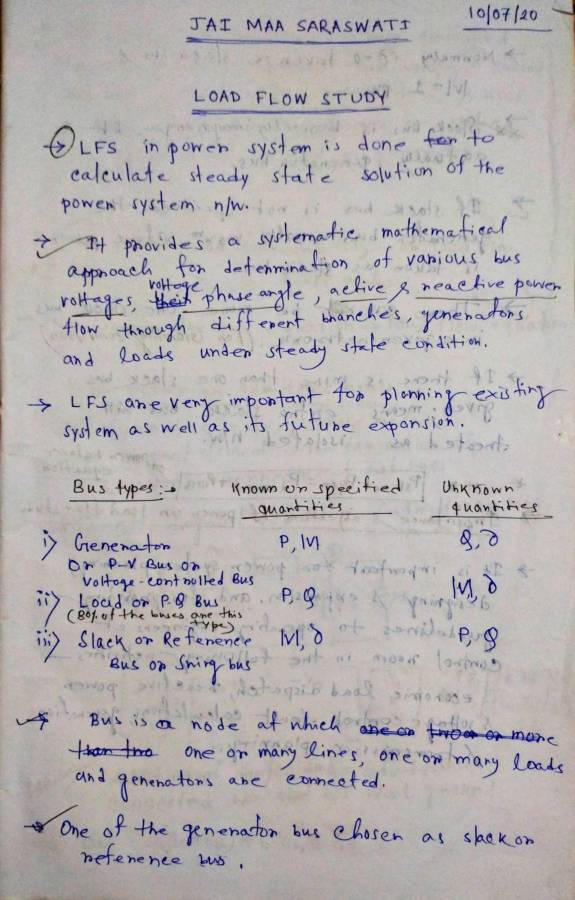 JAI MAA SARASWATI
10/07/20
LOAD FLOW STUDY
→ LFS in power system is done for to
calculate steady state solution of the
power system n/w.
→ It provides a systematic mathematical
approach for determination of various bus
voltages, their voltage phase angle, active & reactive power
flow through different branches, generators
and loads under steady state condition.
→ LFS are very important for planning existing
system as well as its future expansion.
Bus types :→ Known or specified Unknown
quantities quantities
i) Generator P, |V| Q, δ
Or P-V Bus or
Voltage-controlled Bus
ii) Load or P.Q Bus P, Q |V|, δ
(80% of the buses are this
type)
iii) Slack or Reference |V|, δ P, Q
Bus or Swing bus
→ Bus is a node at which one or two or more
than two one or many lines, one or many loads
and generators are connected.
→ One of the generator bus chosen as slack or
reference bus.